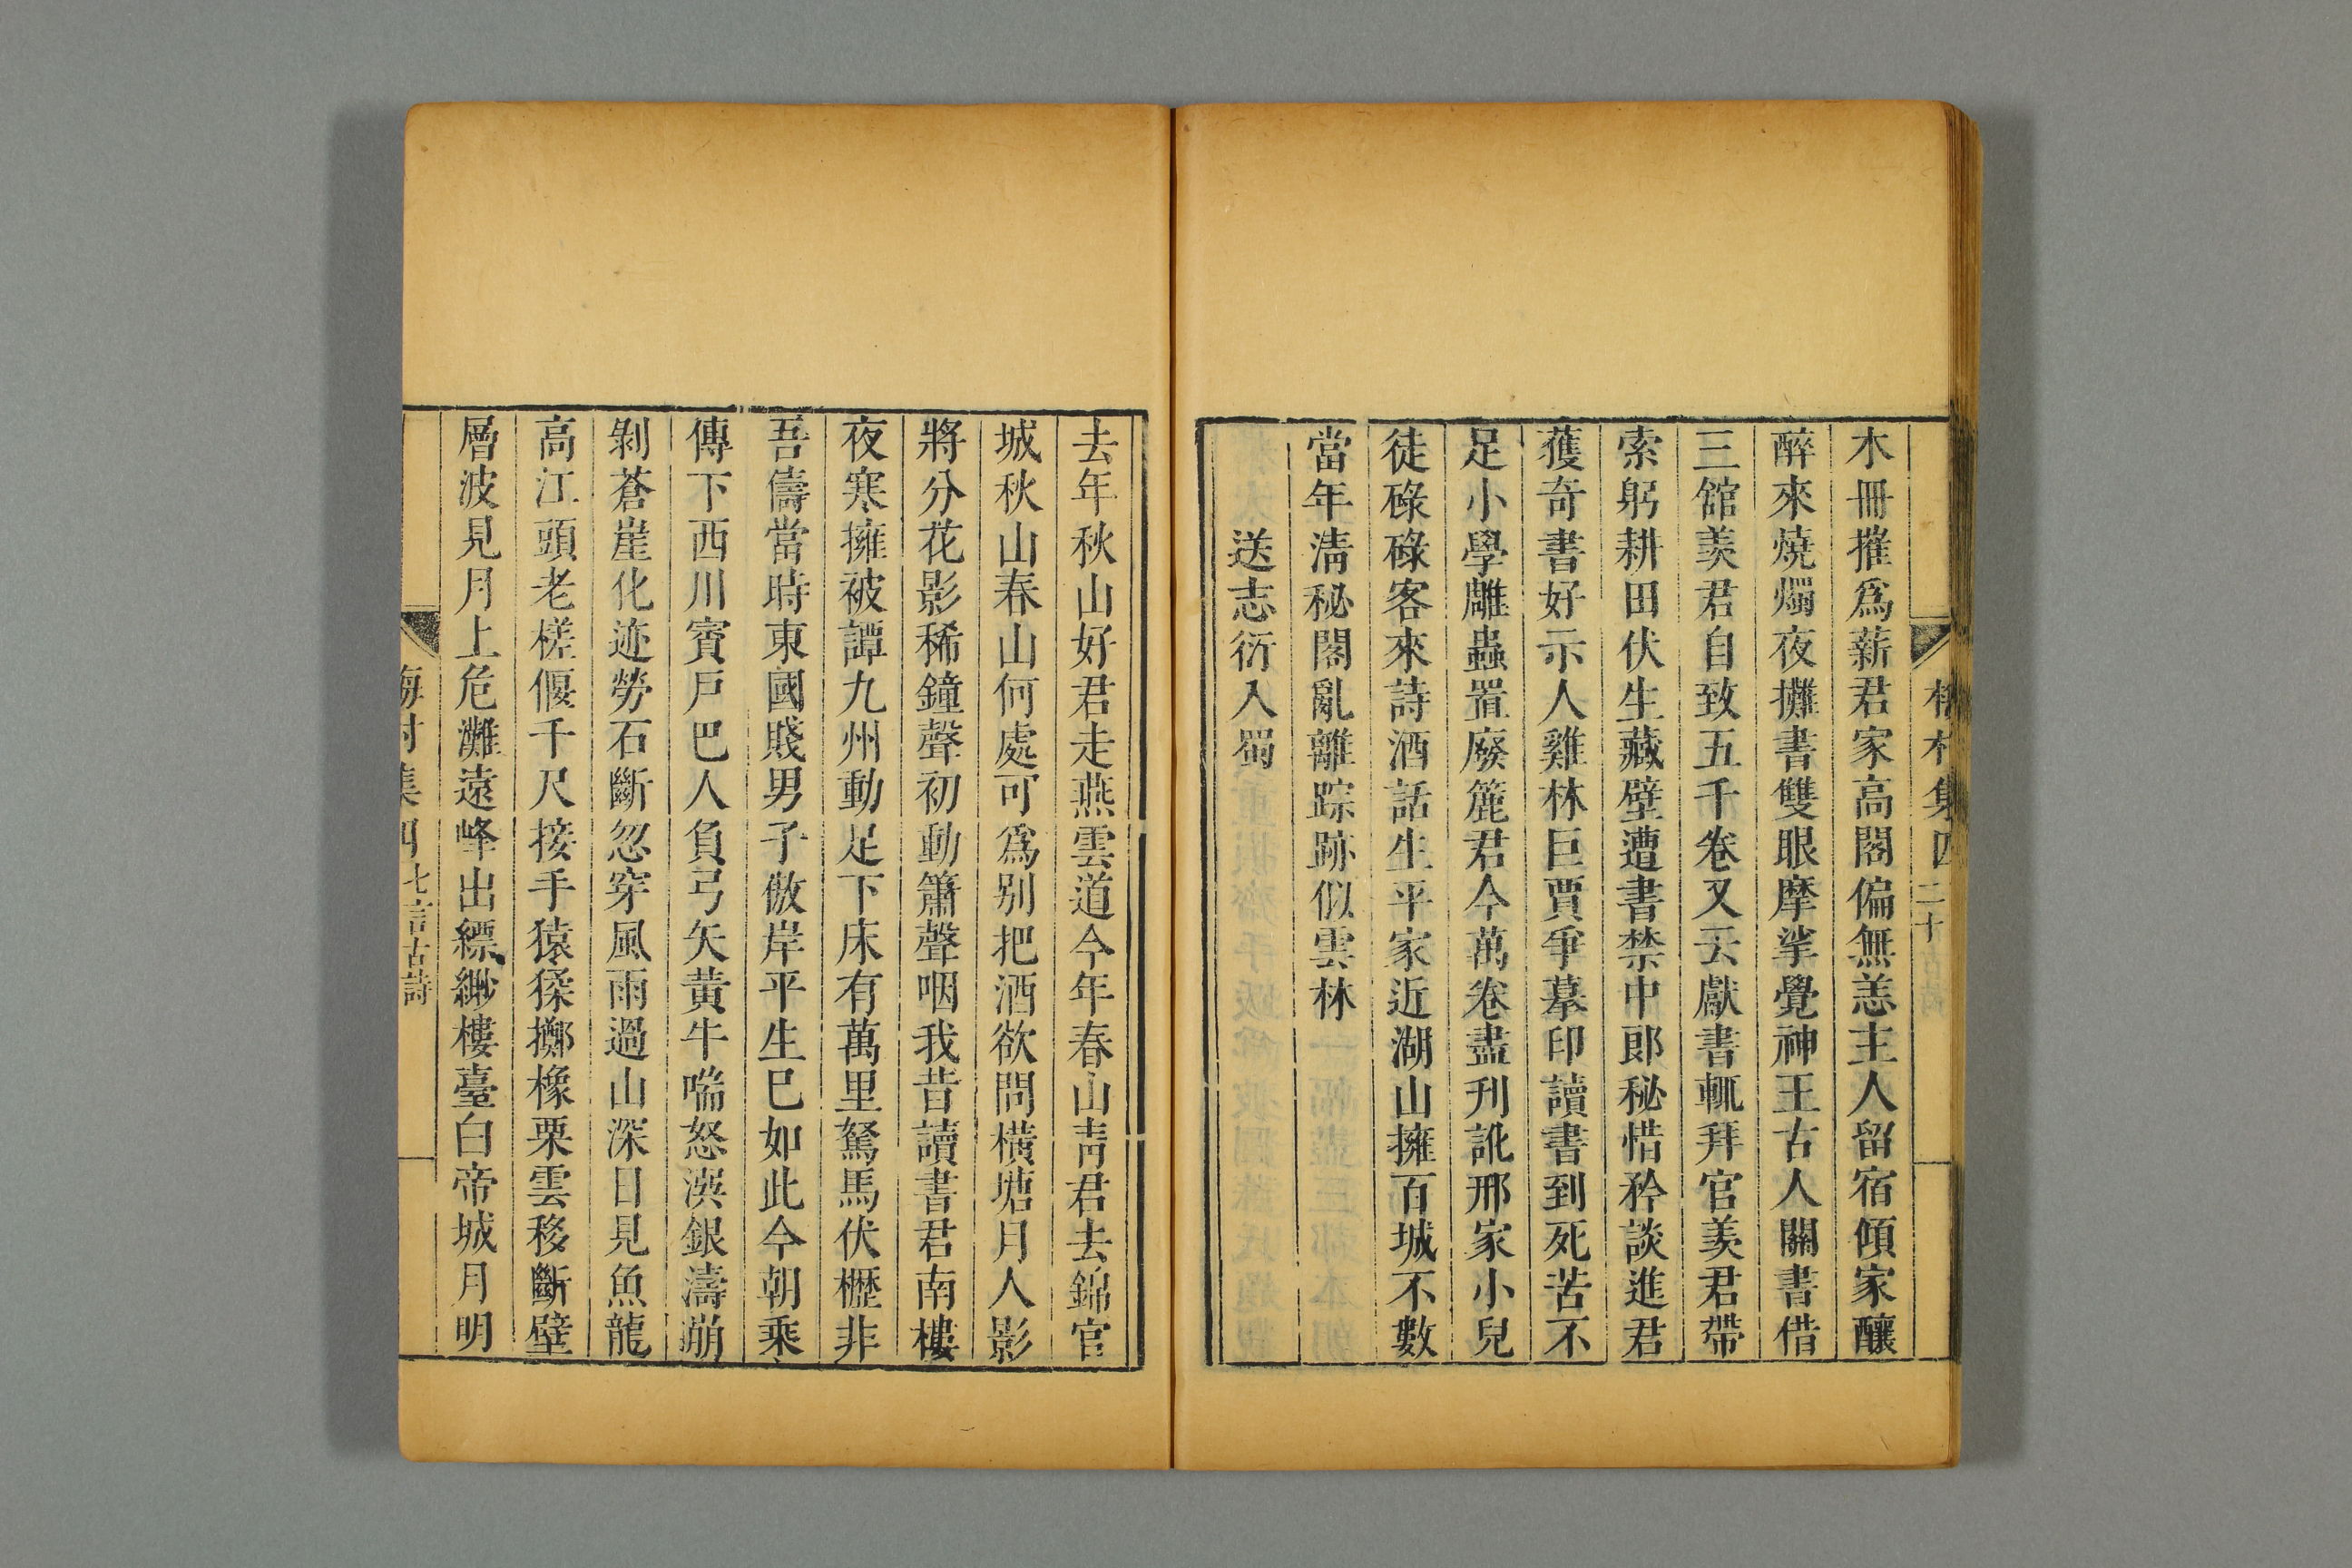 梅村集四 二十
木冊摧爲薪君家高閣偏無恙主人留宿傾家釀
醉來燒燭夜攤書雙眼摩挲覺神王古人關書借
三館羨君自致五千卷又云獻書輒拜官羨君帶
索躬耕田伏生藏壁遭書禁中郎秘惜矜談進君
獲奇書好示人雞林巨賈爭摹印讀書到死苦不
足小學雕蟲置廢簏君今萬卷盡刋訛邢家小兒
徒碌碌客來詩酒話生平家近湖山擁百城不數
當年淸秘閣亂離踪跡似雲林
送志衍入蜀
去年秋山好君走燕雲道今年春山靑君去錦官
城秋山春山何處可爲别把酒欲問橫塘月人影
將分花影稀鐘聲初動簫聲咽我昔讀書君南樓
夜寒擁被譚九州動足下床有萬里駑馬伏櫪非
吾儔當時東國賤男子傲岸平生已如此今朝乘
傳下西川賓戶巴人負弓矢黃牛喘怒漢銀濤崩
剝蒼崖化迹勞石斷忽穿風雨過山深日見魚龍
高江頭老槎偃千尺接手猿猱擲橡栗雲移斷壁
層波見月上危灘遠峰出縹緲樓臺白帝城月明
梅村集四 七言古詩